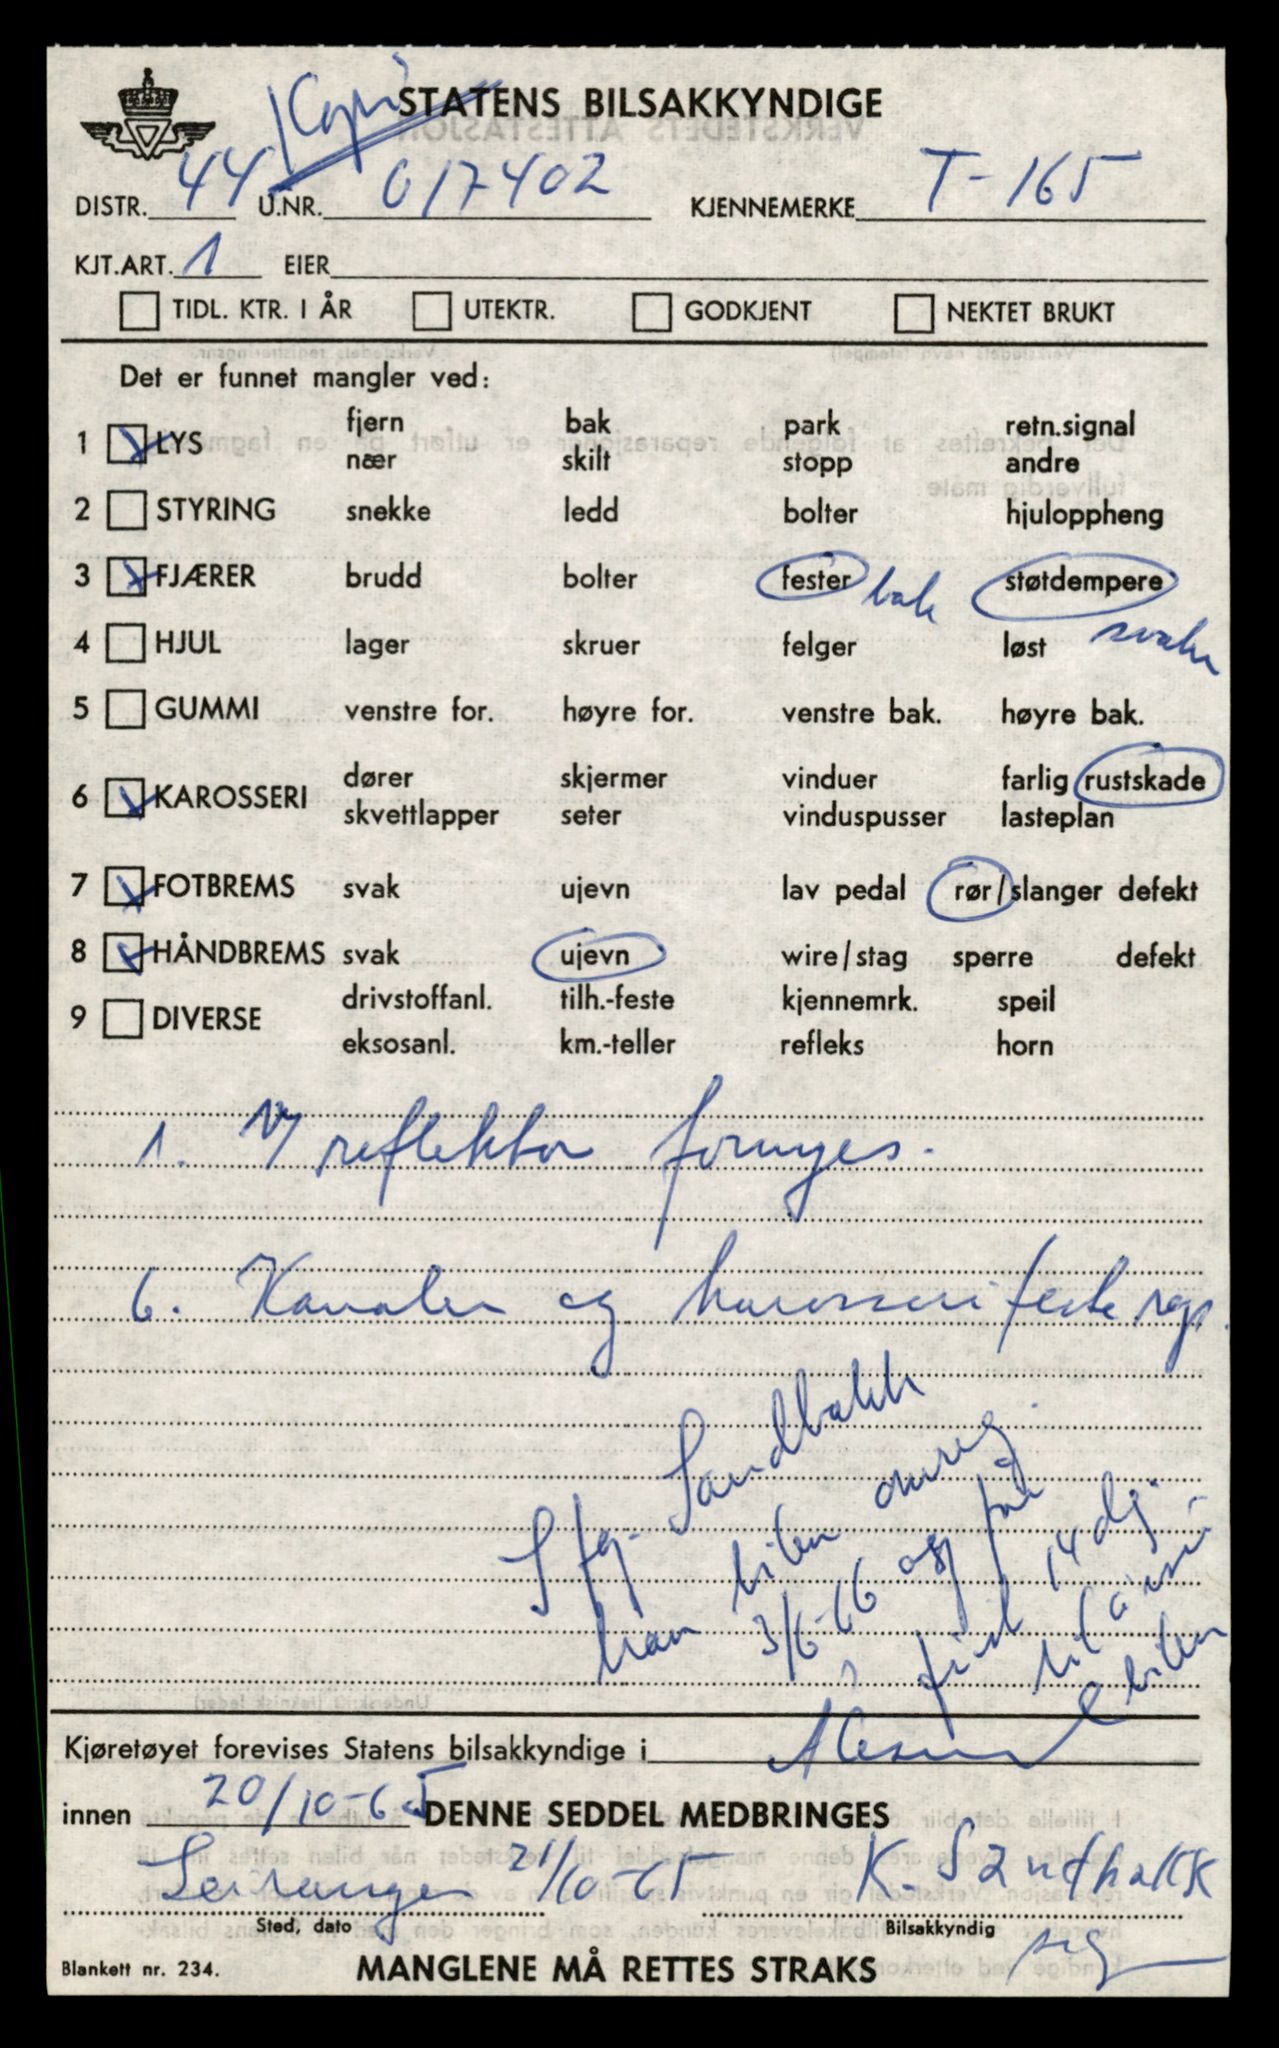 Kopi
STATENS BILSAKKYNDIGE
DISTR. 44 U.NR. 017402 KJENNEMERKE T-165
KJT.ART. 1 EIER
TIDL. KTR. I ÅR UTEKTR. GODKJENT NEKTET BRUKT
Det er funnet mangler ved:
1 LYS fjern bak park retn.signal
nær skilt stopp andre
2 STYRING snekke ledd bolter hjuloppheng
3 FJÆRER brudd bolter fester bak støtdempere
svake
4 HJUL lager skruer felger løst
5 GUMMI venstre for. høyre for. venstre bak. høyre bak.
6 KAROSSERI dører skjermer vinduer farlig rustskade
skvettlapper seter vinduspusser lasteplan
7 FOTBREMS svak ujevn lav pedal rør/slanger defekt
8 HÅNDBREMS svak ujevn wire/stag sperre defekt
9 DIVERSE drivstoffanl. tilh.-feste kjennemrk. speil
eksosanl. km.-teller refleks horn
1. V/ reflektor fornyes.
6. Kanaler og karosserifeste rep.
Ifg. Sandbakk
kan bilen omreg.
3/6-66 og får
frist 14 dg.
til å
bilen
Kjøretøyet forevises Statens bilsakkyndige i Ålesund
innen 20/10-65 DENNE SEDDEL MEDBRINGES
21/10-65 K. Sandbakk
Sted, dato Bilsakkyndig
sig
Blankett nr. 234. MANGLENE MÅ RETTES STRAKS